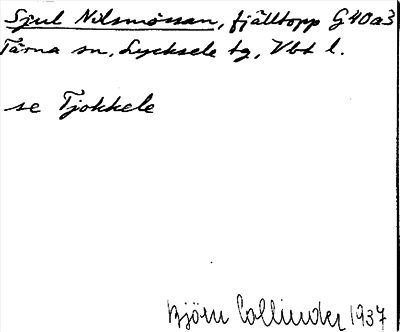 Sjul Nilsmössan, fjälltopp G40a3
Tärna sn, Lycksele tg, Vbt l.
se Tjokkele
Björn Collinder 1937